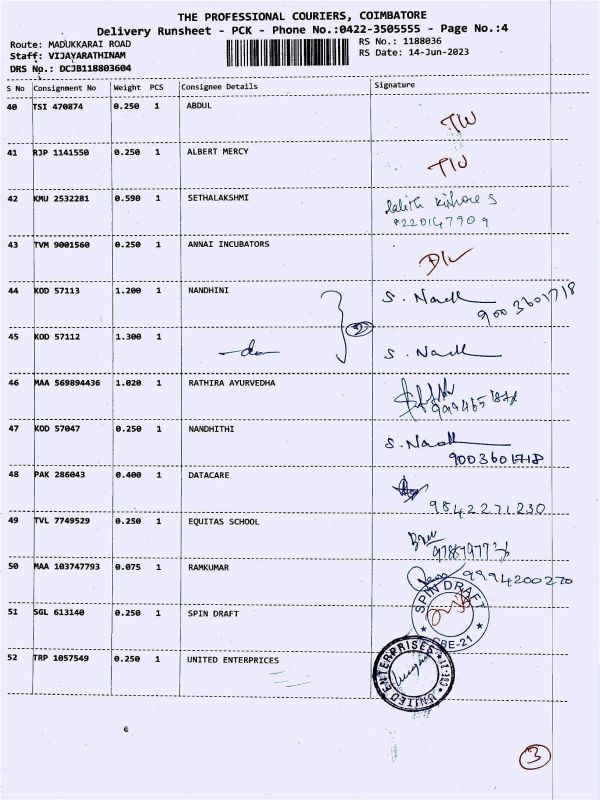 THE PROFESSIONAL COURIERS, COIMBATORE
Delivery Runsheet - PCK - Phone No.:0422-3505555 - Page No.:4
Route: MADUKKARAI ROAD RS No.: 1188036
Staff: VIJAYARATHINAM RS Date: 14-Jun-2023
DRS No.: DCJB118803604
S No Consignment No Weight PCS Consignee Details Signature
40 TSI 470874 0.250 1 ABDUL
41 RJP 1141550 0.250 1 ALBERT MERCY
42 KMU 2532281 0.590 1 SETHALAKSHMI
Lalith Kishore S
43 TVM 9001560 0.250 1 ANNAI INCUBATORS
44 KOD 57113 1.200 1 NANDHINI
9003601718
2
45 KOD 57112 1.300 1
46 MAA 569894436 1.020 1 RATHIRA AYURVEDHA
47 KOD 57047 0.250 1 NANDHITHI
9003601718
48 PAK 286043 0.400 1 DATACARE
9842271230
49 TVL 7749529 0.250 1 EQUITAS SCHOOL
50 MAA 103747793 0.075 1 RAMKUMAR
9994200270
51 SGL 613140 0.250 1 SPIN DRAFT
SPIN DRAFT
CBE-21
52 TRP 1057549 0.250 1 UNITED ENTERPRICES
UNITED ENTERPRISES
CBE-21
6
3